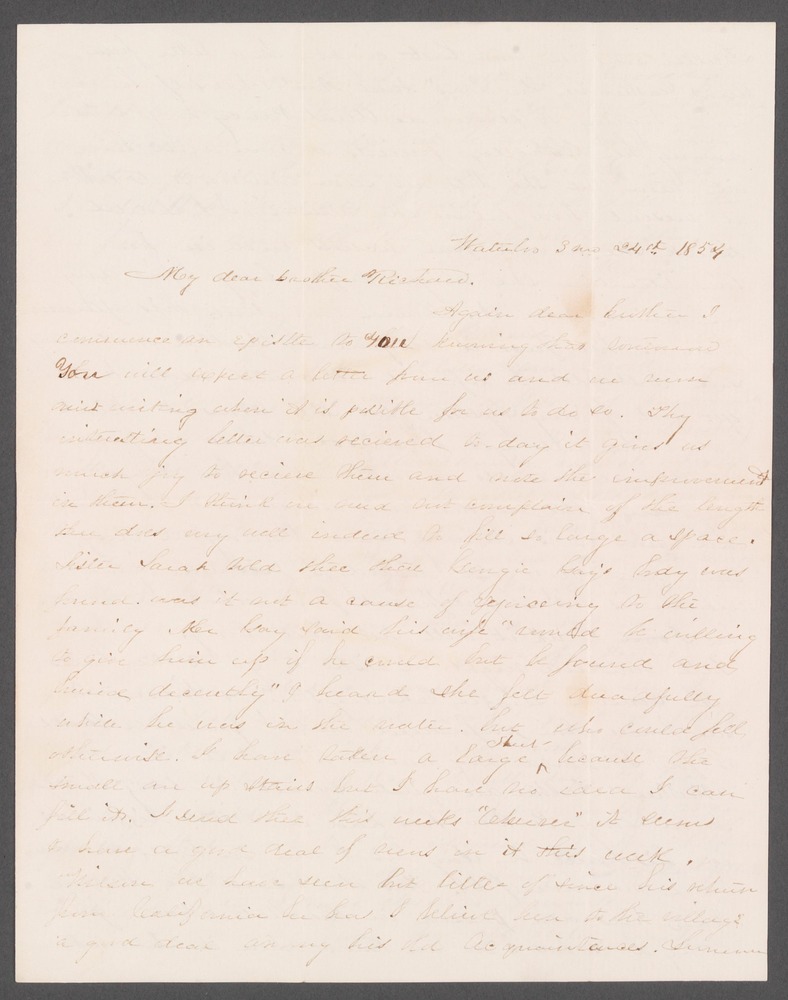 Waterloo 3 mo 24th 1854
My dear brother Richard.
Again dear brother I
commence an epistle to you knowing that
You will expect a letter from us and we
writing when it is posible for us to do so. Thy
interesting letter was recieved to-day it gives us
much joy to recieve them and note the improvement
in them. I think we need not complain of the length
thee does very well indeed to fill so large a space.
Sister Sarah told thee that Kay's body was
found. was it not a cause of rejoiceing to the
family. Mr Kay said his wife "would be willing
to give him up if he could but be found and
buried decently" I heard she felt dreadfully
while he was in the water. but who could feel
otherwise. I have taken a large sheet because the
small are up stairs but I have no idea I can
fill it. I send thee this weeks it seems
to have a good deal of news in it this week.
we have seen but little of since his return
from California he has I believe been to the village
a good deal among his old acquaintances.